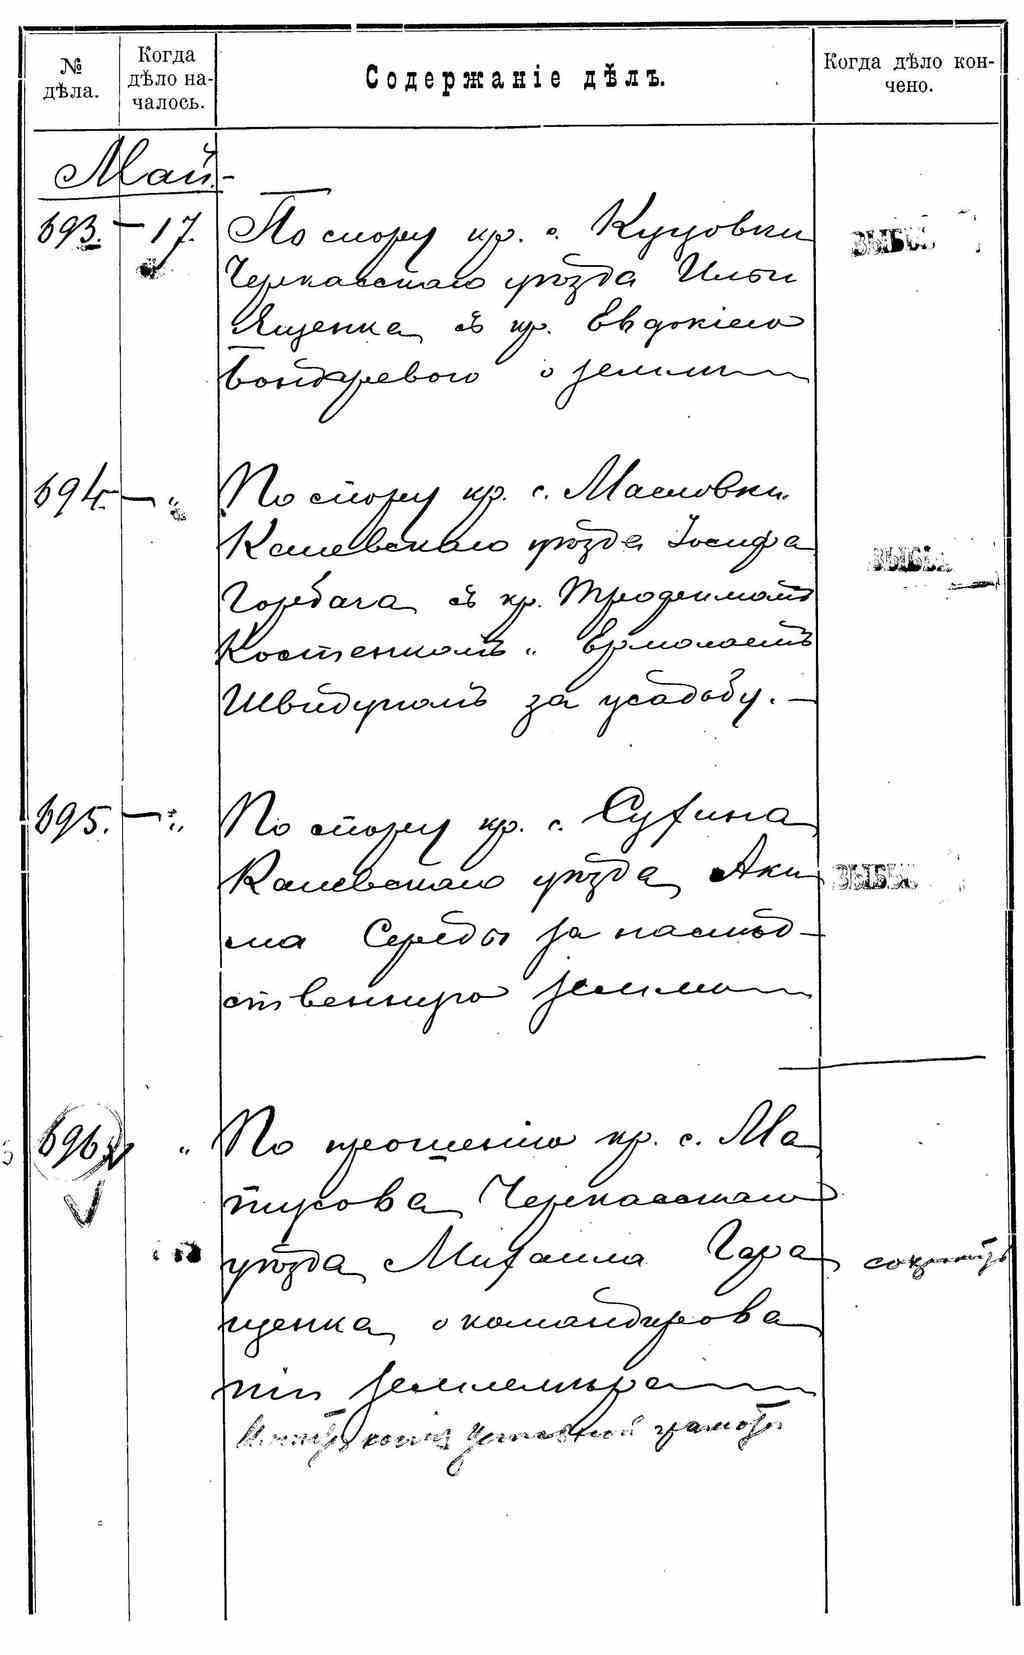 № дѣла.
Когда дѣло на-
чалось.
Содержаніе дѣлъ.
Когда дѣло кон-
чено.
Май.-
693. - 17.
По спору кр. с. Куцовки
Черкасскаго уѣзда Ильи
Ященка съ кр. Евдокіею
Бондаревою о землѣ
ВЫБЫ
694. - "
По спору кр. с. Масловки
Каневскаго уѣзда Іосифа
Горбача съ кр. Трофимомъ
Костенкомъ и Ермолаемъ
Швидуномъ за усадьбу. -
ВЫБЫ
695. - "
По спору кр. с. Сухина
Каневскаго уѣзда Аки
ма Середы за наслѣд-
ственную землю
ВЫБЫ
696 "
По прошенію кр. с. Ма
тусова Черкасскаго
уѣзда Михаила Гара
щенка о командирова
ніи землемѣра
копія уставной грамоты